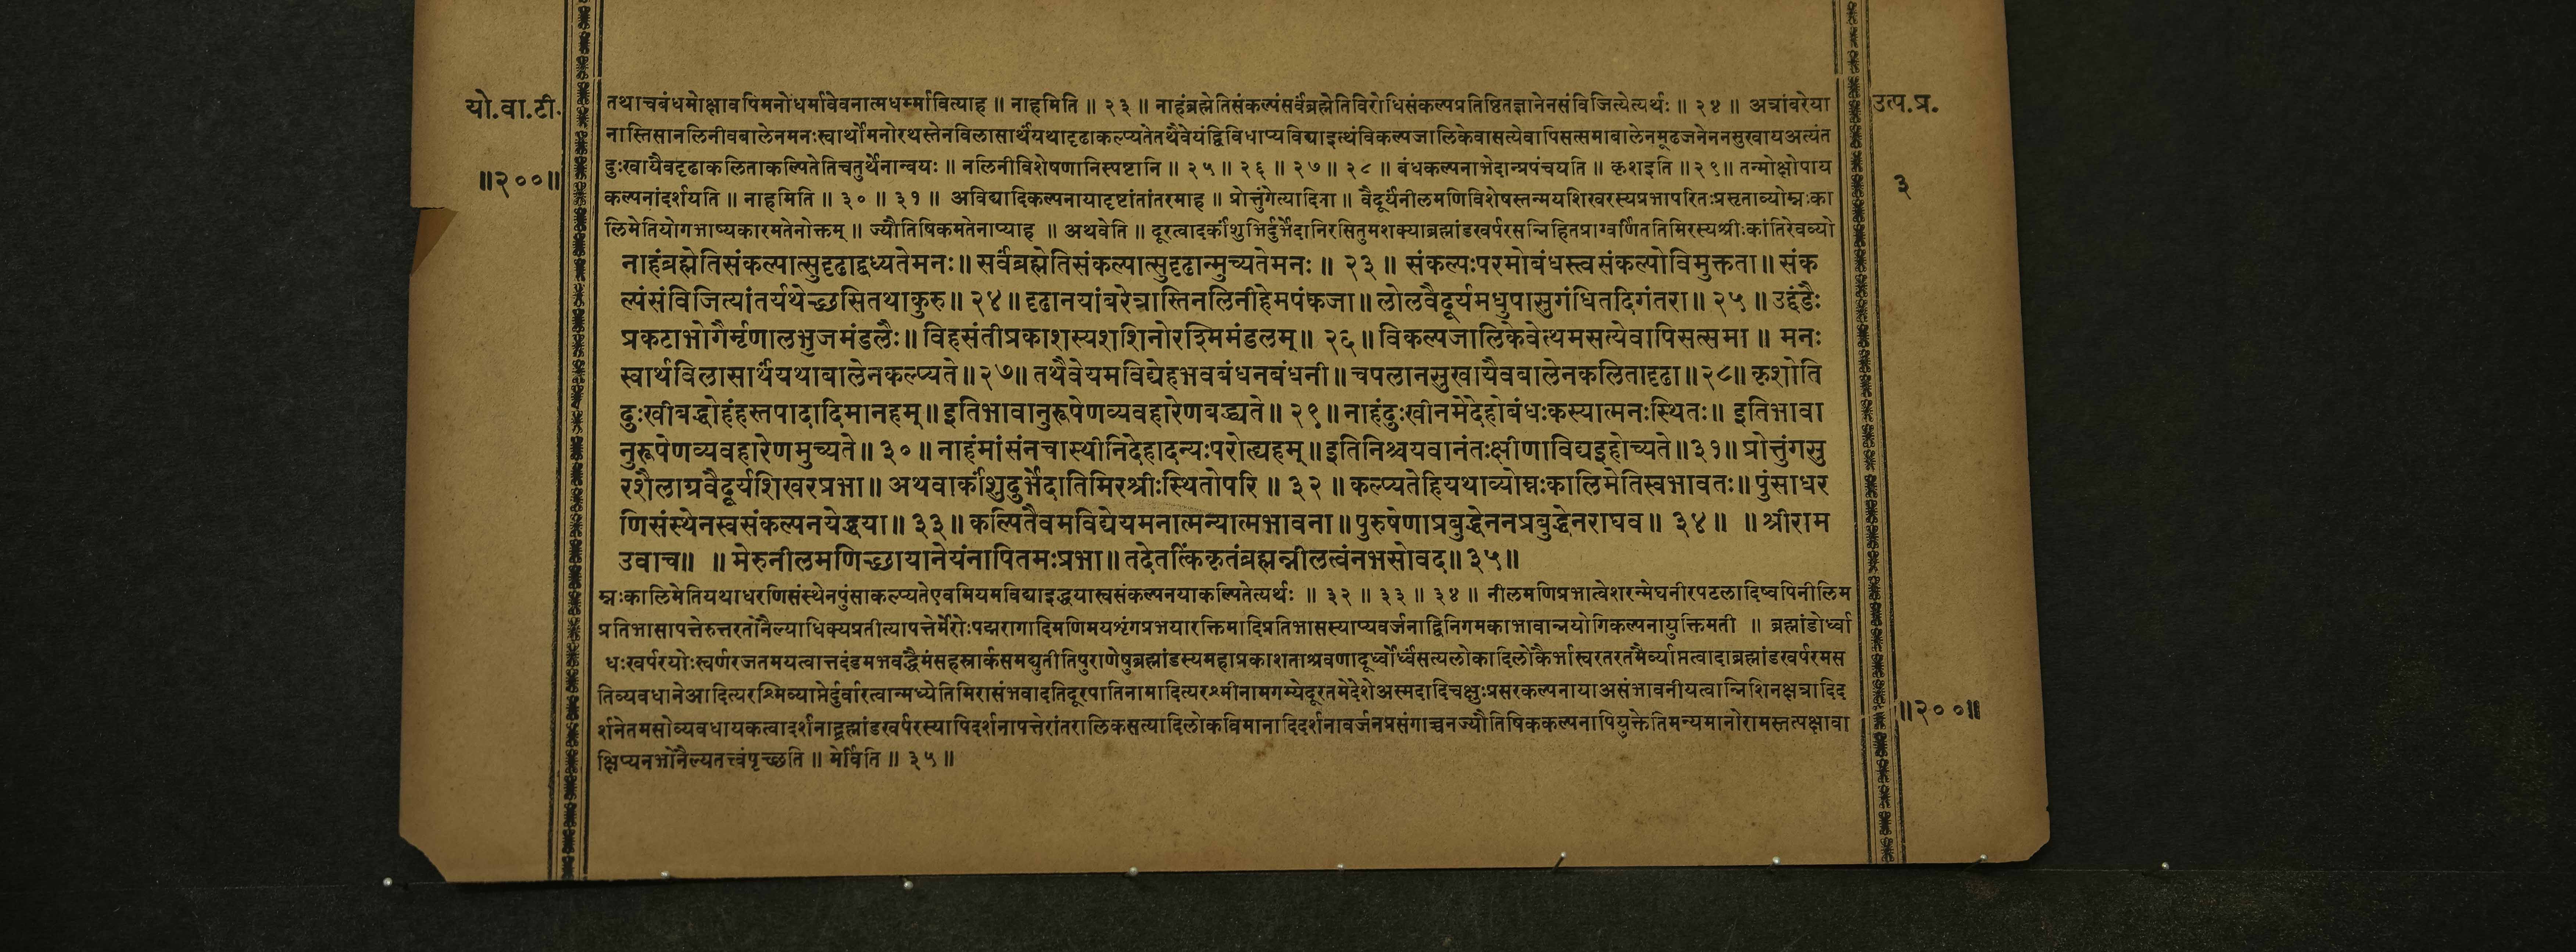 यो.वा.टी.
॥२००॥
उत्प.प्र.
३
तथाचबंधमोक्षावपिमनोधर्मावेवनात्मधर्म्मावित्याह ॥ नाहमिति ॥ २३ ॥ नाहंब्रह्मेतिसंकल्पंसर्वंब्रह्मेतिविरोधिसंकल्पप्रतिष्ठितज्ञानेनसंविजित्येत्यर्थः ॥ २४ ॥ अत्रांबरेया
नास्तिसानलिनीवबालेनमनःस्वार्थोमनोरथस्तेनविलासार्थंयथादृढाकल्प्यतेतथैवेयंद्विविधाप्यविद्याइत्थंविकल्पजालिकेवासत्येवापिसत्समाबालेनमूढजनेननसुखायअत्यंत
दुःखायैवदृढाकलिताकल्पितेतिचतुर्थेनान्वयः ॥ नलिनीविशेषणानिस्पष्टानि ॥ २५ ॥ २६ ॥ २७ ॥ २८ ॥ बंधकल्पनाभेदान्प्रपंचयति ॥ कृशइति ॥ २९॥ तन्मोक्षोपाय
कल्पनांदर्शयति ॥ नाहमिति ॥ ३० ॥ ३१ ॥ अविद्यादिकल्पनायादृष्टांतांतरमाह ॥ प्रोत्तुंगेत्यादिना ॥ वैदूर्यंनीलमणिविशेषस्तन्मयशिखरस्यप्रभापरितःप्रसृताव्योम्नःका
लिमेतियोगभाष्यकारमतेनोक्तम् ॥ ज्यौतिषिकमतेनाप्याह ॥ अथवेति ॥ दूरत्वादर्कांशुभिर्दुर्भेदानिरसितुमशक्याब्रह्मांडखर्परसन्निहितप्राग्वर्णिततिमिरस्यश्रीःकांतिरेवव्यो
नाहंब्रह्मेतिसंकल्पात्सुदृढाद्बध्यतेमनः॥ सर्वंब्रह्मेतिसंकल्पात्सुदृढान्मुच्यतेमनः ॥ २३ ॥ संकल्पःपरमोबंधस्त्वसंकल्पोविमुक्तता॥ संक
ल्पंसंविजित्यांतर्यथेच्छसितथाकुरु॥ २४॥ दृढानयांबरेत्रास्तिनलिनीहेमपंकजा॥ लोलवैदूर्यमधुपासुगंधितदिगंतरा॥ २५ ॥ उद्दंडैः
प्रकटाभोगैर्मृणालभुजमंडलैः॥ विहसंतीप्रकाशस्यशशिनोरश्मिमंडलम्॥ २६॥ विकल्पजालिकेवेत्थमसत्येवापिसत्समा ॥ मनः
स्वार्थविलासार्थंयथाबालेनकल्प्यते॥ २७॥ तथैवेयमविद्येहभवबंधनबंधनी॥ चपलानसुखायैवबालेनकलितादृढा॥ २८॥ कृशोति
दुःखीबद्धोहंहस्तपादादिमानहम्॥ इतिभावानुरूपेणव्यवहारेणबद्ध्यते॥ २९॥ नाहंदुःखीनमेदेहोबंधःकस्यात्मनःस्थितः॥ इतिभावा
नुरूपेणव्यवहारेणमुच्यते॥ ३०॥ नाहंमांसंनचास्थीनिदेहादन्यःपरोत्द्यहम्॥ इतिनिश्चयवानंतःक्षीणाविद्यइहोच्यते॥ ३१॥ प्रोत्तुंगसु
रशैलाग्रवैदूर्यशिखरप्रभा॥ अथवार्कांशुदुर्भेदातिमिरश्रीःस्थितोपरि ॥ ३२ ॥ कल्प्यतेहियथाव्योम्नःकालिमेतिस्वभावतः॥ पुंसाधर
णिसंस्थेनस्वसंकल्पनयेद्धया॥ ३३॥ कल्पितैवमविद्येयमनात्मन्यात्मभावना॥ पुरुषेणाप्रबुद्धेननप्रबुद्धेनराघव॥ ३४॥ ॥ श्रीराम
उवाच॥ ॥ मेरुनीलमणिच्छायानेयंनापितमःप्रभा॥ तदेतत्किंकृतंब्रह्मन्नीलत्वंनभसोवद॥ ३५॥
म्नःकालिमेतियथाधरणिसंस्थेनपुंसाकल्प्यतेएवमियमविद्याइद्धयास्वसंकल्पनयाकल्पितेत्यर्थः ॥ ३२ ॥ ३३ ॥ ३४ ॥ नीलमणिप्रभात्वेशरन्मेघनीरपटलादिष्वपिनीलिम
प्रतिभासापत्तेरुत्तरतोनैल्याधिक्यप्रतीत्यापत्तेर्मेरोःपद्मरागादिमणिमयशृंगप्रभयारक्तिमादिप्रतिभासस्याप्यवर्जनाद्विनिगमकाभावान्नयोगिकल्पनायुक्तिमती ॥ ब्रह्मांडोर्ध्वा
धःखर्परयोःस्वर्णरजतमयत्वात्तदंडमभवद्धैमंसहस्रार्कसमद्युतीतिपुराणेषुब्रह्मांडस्यमहाप्रकाशताश्रवणादूर्ध्वोर्ध्वंसत्यलोकादिलोकैर्भास्वरतरतमैर्व्याप्तत्वादाब्रह्मांडखर्परमस
तिव्यवधानेआदित्यरश्मिव्याप्तेर्दुर्वारत्वान्मध्येतिमिरासंभवादतिदूरपातिनामादित्यरश्मीनामगम्येदूरतमेदेशेअस्मदादिचक्षुःप्रसरकल्पनायाअसंभावनीयत्वान्निशिनक्षत्रादिद
र्शनेतमसोव्यवधायकत्वादर्शनाद्ब्रह्मांडखर्परस्यापिदर्शनापत्तेरांतरालिकसत्यादिलोकविमानादिदर्शनावर्जनप्रसंगाच्चनज्यौतिषिककल्पनापियुक्तेतिमन्यमानोरामस्तत्पक्षावा
क्षिप्यनभोनैल्यतत्त्वंपृच्छति ॥ मेर्विति ॥ ३५ ॥
॥२००॥